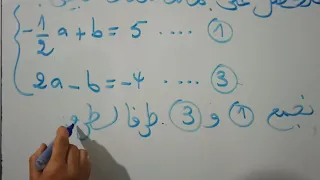 -1/2 a + b = 5 .... ①
2a - b = -4 .... ③
نجمع ① و ③ طرفا لطرف